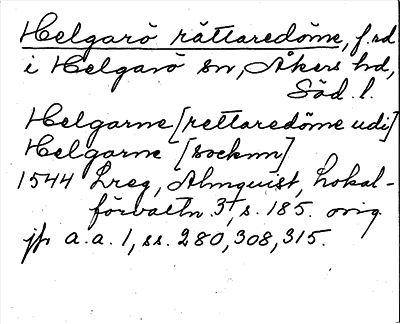 Helgarö rättaredöme, f.rd
i Helgarö sn, Åkers hd,
Söd. l.
Helgarne [rettaredöme udi]
Helgarne [socknn]
1544 Lreg, Almquist, Lokal-
förvaltn. 3, s. 185. orig
jfr a.a. 1, ss. 280, 308, 315.